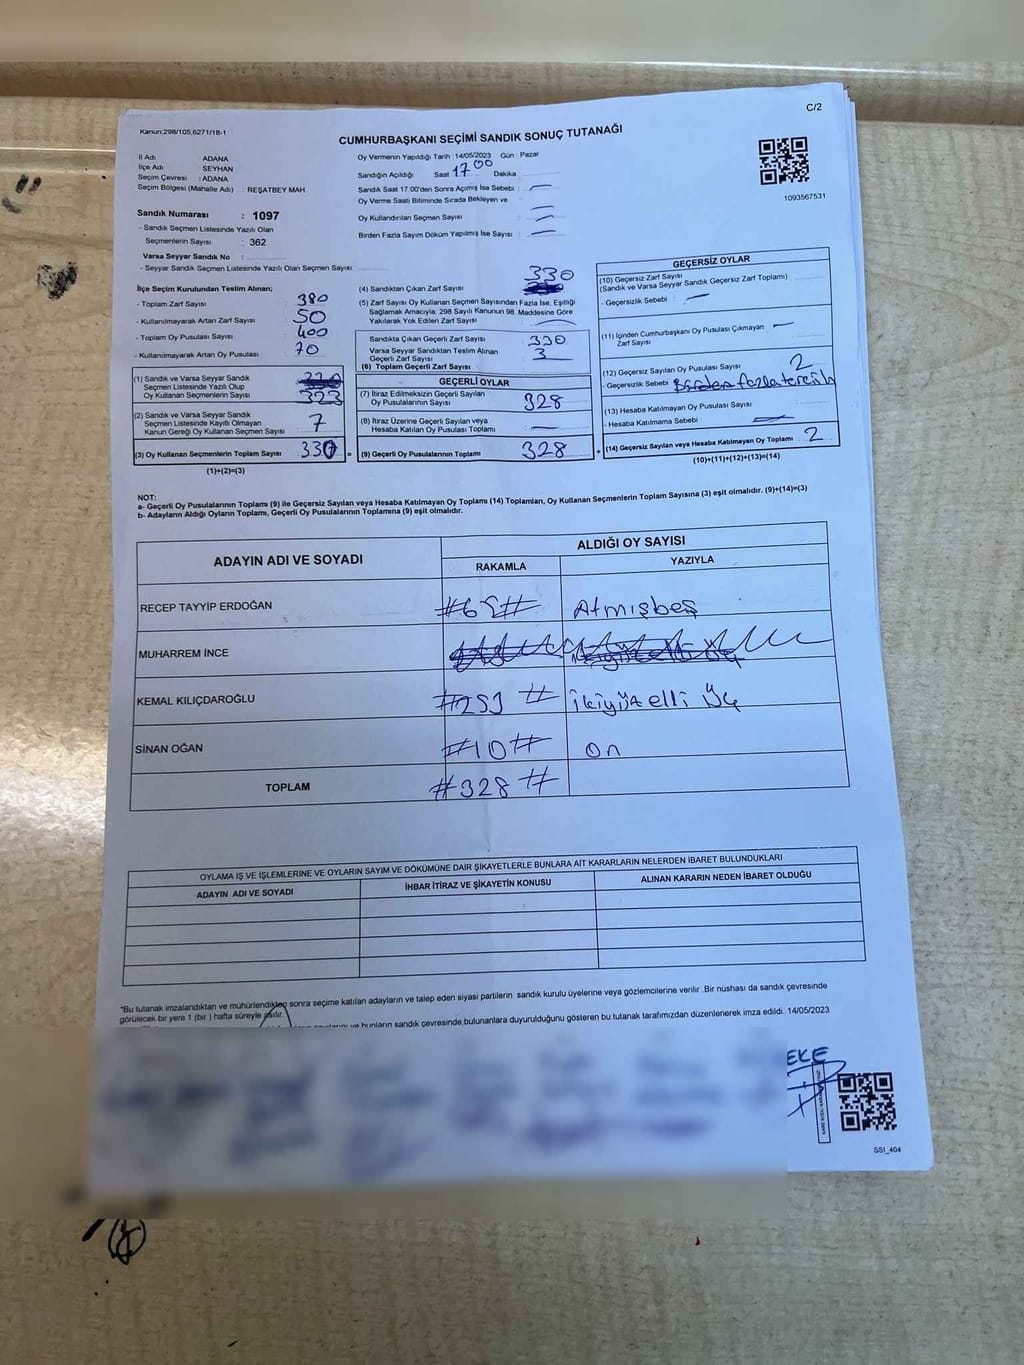 C/2
Kanun;298/105;6271/18-1
CUMHURBAŞKANI SEÇİMİ SANDIK SONUÇ TUTANAĞI
İl Adı ADANA
İlçe Adı SEYHAN
Seçim Çevresi : ADANA
Seçim Bölgesi (Mahalle Adı) : REŞATBEY MAH
Sandık Numarası : 1097
- Sandık Seçmen Listesinde Yazılı Olan
Seçmenlerin Sayısı : 362
Varsa Seyyar Sandık No :
- Seyyar Sandık Seçmen Listesinde Yazılı Olan Seçmen Sayısı
Oy Vermenin Yapıldığı Tarih : 14/05/2023 Gün : Pazar
Sandığın Açıldığı Saat 17 00 Dakika
Sandık Saat 17:00'den Sonra Açımış İse Sebebi :
Oy Verme Saati Bitiminde Sırada Bekleyen ve
Oy Kullandırılan Seçmen Sayısı :
Birden Fazla Sayım Döküm Yapılmış İse Sayısı :
1093567531
İlçe Seçim Kurulundan Teslim Alınan;
- Toplam Zarf Sayısı : 380
- Kullanılmayarak Artan Zarf Sayısı : 50
- Toplam Oy Pusulası Sayısı : 400
- Kullanılmayarak Artan Oy Pusulası : 70
(1) Sandık ve Varsa Seyyar Sandık
Seçmen Listesinde Yazılı Olup
Oy Kullanan Seçmenlerin Sayısı 323
(2) Sandık ve Varsa Seyyar Sandık
Seçmen Listesinde Kayıtlı Olmayan
Kanun Gereği Oy Kullanan Seçmen Sayısı : 7
(3) Oy Kullanan Seçmenlerin Toplam Sayısı : 330
(1)+(2)=(3)
(4) Sandıktan Çıkan Zarf Sayısı : 330
(5) Zarf Sayısı Oy Kullanan Seçmen Sayısından Fazla İse, Eşitliği
Sağlamak Amacıyla, 298 Sayılı Kanunun 98. Maddesine Göre
Yakılarak Yok Edilen Zarf Sayısı :
Sandıkta Çıkan Geçerli Zarf Sayısı : 330
Varsa Seyyar Sandıktan Teslim Alınan
Geçerli Zarf Sayısı : 3
(6) Toplam Geçerli Zarf Sayısı
GEÇERLİ OYLAR
(7) İtiraz Edilmeksizin Geçerli Sayılan
Oy Pusulasının Sayısı : 328
(8) İtiraz Üzerine Geçerli Sayılan veya
Hesaba Katılan Oy Pusulası Toplamı :
= (9) Geçerli Oy Pusulalarının Toplamı : 328
GEÇERSİZ OYLAR
(10) Geçersiz Zarf Sayısı
(Sandık ve Varsa Seyyar Sandık Geçersiz Zarf Toplamı)
- Geçersizlik Sebebi :
(11) İçinden Cumhurbaşkanı Oy Pusulası Çıkmayan :
Zarf Sayısı
(12) Geçersiz Sayılan Oy Pusulası Sayısı : 2
- Geçersizlik Sebebi : Birden fazla tercih
(13) Hesaba Katılmayan Oy Pusulası Sayısı :
- Hesaba Katılmama Sebebi :
+ (14) Geçersiz Sayılan veya Hesaba Katılmayan Oy Toplamı : 2
(10)+(11)+(12)+(13)=(14)
NOT:
a- Geçerli Oy Pusulalarının Toplamı (9) ile Geçersiz Sayılan veya Hesaba Katılmayan Oy Toplamı (14) Toplamları, Oy Kullanan Seçmenlerin Toplam Sayısına (3) eşit olmalıdır. (9)+(14)=(3)
b- Adayların Aldığı Oyların Toplamı, Geçerli Oy Pusulalarının Toplamına (9) eşit olmalıdır.
ADAYIN ADI VE SOYADI
ALDIĞI OY SAYISI
RAKAMLA YAZIYLA
RECEP TAYYİP ERDOĞAN #65# Atmışbeş
MUHARREM İNCE
KEMAL KILIÇDAROĞLU #253# ikiyüz elli Üç
SİNAN OĞAN #10# on
TOPLAM #328#
OYLAMA İŞ VE İŞLEMLERİNE VE OYLARIN SAYIM VE DÖKÜMÜNE DAİR ŞİKAYETLERLE BUNLARA AİT KARARLARIN NELERDEN İBARET BULUNDUKLARI
ADAYIN ADI VE SOYADI İHBAR İTİRAZ VE ŞİKAYETİN KONUSU ALINAN KARARIN NEDEN İBARET OLDUĞU
*Bu tutanak imzalandıktan ve mühürlendikten sonra seçime katılan adayların ve talep eden siyasi partilerin sandık kurulu üyelerine veya gözlemcilerine verilir .Bir nüshası da sandık çevresinde
görülecek bir yere 1 (bir ) hafta süreyle asılır.
ve bunların sandık çevresinde,bulunanlara duyurulduğunu gösteren bu tutanak tarafımızdan düzenlenerek imza edildi. 14/05/2023
EKE
SSI_404